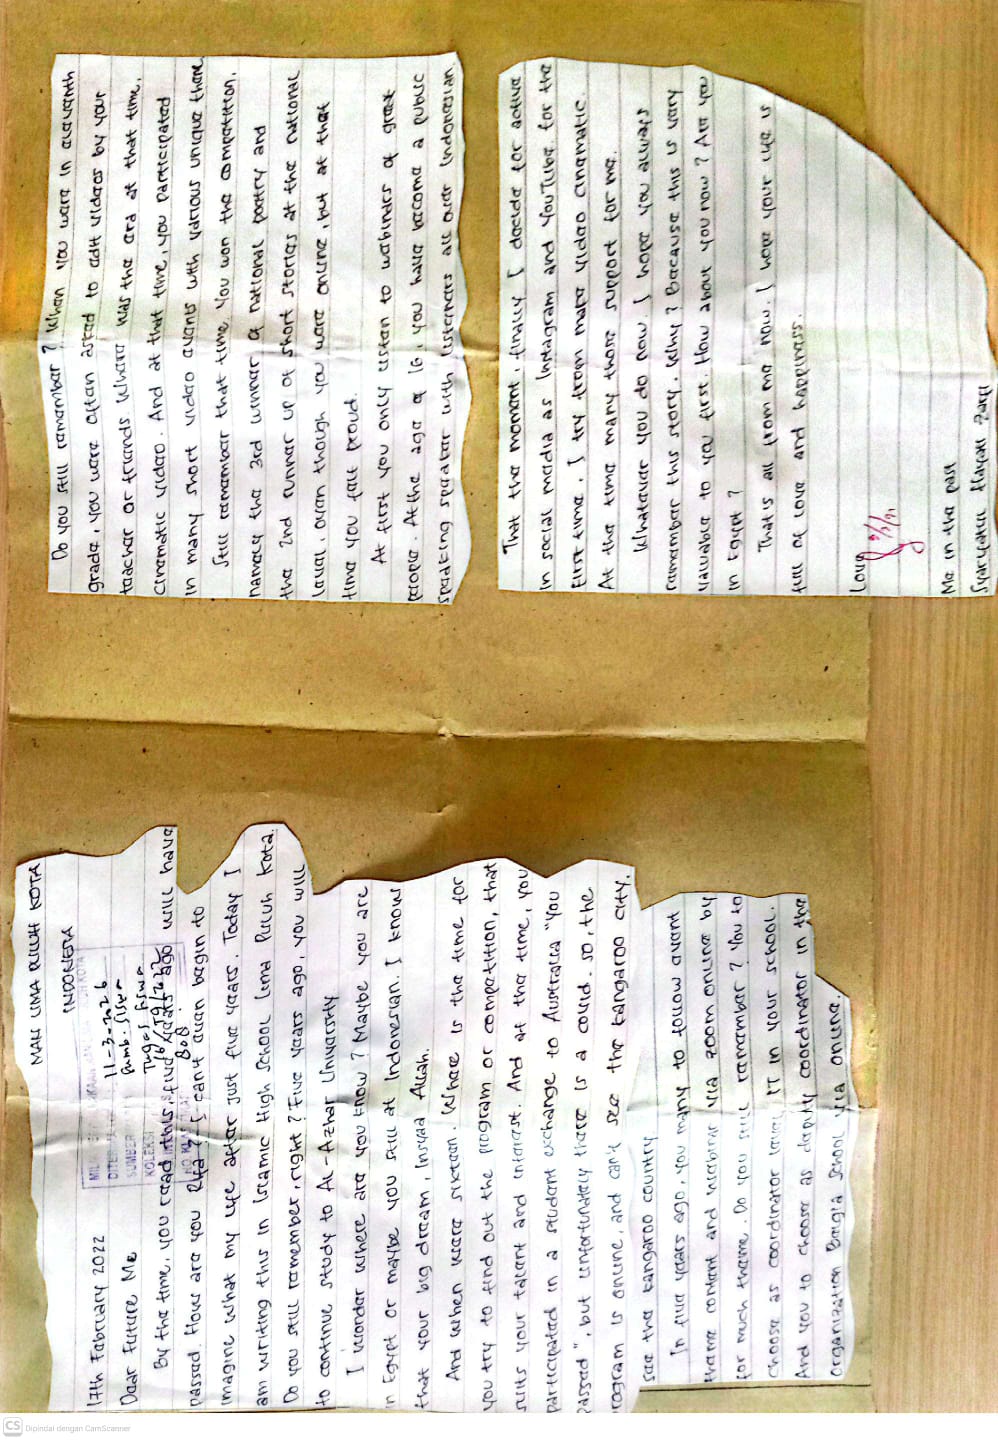 MAN LIMA PULUH KOTA
INDONESIA
17th February 2022
Dear Future Me
By the time, you read this, five years ago will have
passed. Hows are you Rifa? I can't even begin to
imagine what my life after just five years. Today I
am writing this in Islamic High School Lima Puluh Kota.
Do you still remember, right? Five years ago, you will
to continue study to Al-Azhar University
I wonder where are you know? Maybe you are
in Egypt or maybe you still at Indonesian. I know
that your big dream, Insyaa Allah.
And when were sixteen. Where is the time for
you try to find out the program or competition, that
suits your talent and interest. And at the time, you
participated in a student exchange to Australia "You
passed", but unfortunately there is a covid. so, the
rogram is online, and can't see the kangaroo city.
see the kangaroo country
In five years ago, you many to follow event
theme content and webinar via zoom online by
for much theme. Do you still remember? You to
choose as coordinator level IT in your school.
And you to choose as deputy coordinator in the
Organization Bangla School via online.
MIL
DITE
11-3-2026
SUMBER
Sumb. Siswa
KOLEKSI
Tugas Siswa
NO KLAS
808
Do you still remember? When you were in eleventh
grade, you were often asked to edit videos by your
teacher or friends. Where was the era at that time,
Cinematic video. And at that time, you participated
in many short video events with various unique there.
Still remember that time. You won the competition,
namely the 3rd winner of national poetry and
the 2nd runner up of short stories at the national
level, even though you were online, but at that
time you felt proud.
At first you only listen to webinars of great
people. At the age of 16, you have become a public
speaking speaker with listeners all over Indonesian.
That the moment, finally I decide for active
in social media as Instagram and YouTube. For the
first time, I try from make video cinematic.
At the time many those support for me.
Whatever you do now. I hope you always
remember this story. Why? Because this is very
valuable to you first. How about you now? Are you
in Egypt?
That is all from me now. I hope your life is
full of love and happiness.
Love
Me in the past